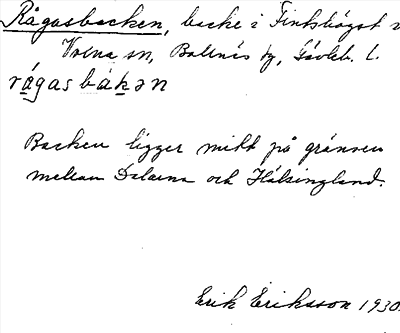 Rågasbacken, backe i Finkhögst
Voxna sn, Bollnäs fg, Gävleb. l.
rågasbakən
Backen ligger mitt på gränsen
mellan Dalarna och Hälsingland.
Erik Eriksson 1930.